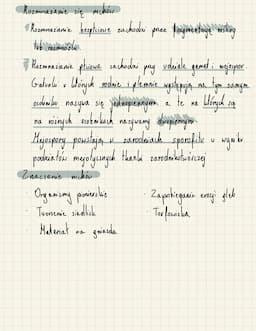 Rozmnażanie się mchów
Rozmnażanie bezpłciowe zachodzi przez fragmentację
lub rozmnóżki
Rozmnażanie płciowe zachodzi przy udziale gamet i mejospor
Gatunki u których rodnie i plemnie występują na tym samym
osobniku nazywa się jednopiennym a te na których są
na różnych osobnikach nazywamy dwupiennym
Mejospory powstają w zarodniach sporofitu w wyniku
podziałów mejotycznych tkanki zarodnikotwórczej
Znaczenie mchów
· Organizmy pionierskie
· Zapobieganie erozji gleb
· Tworzenie siedlisk
· Torfowiska
Materiał na gniazda